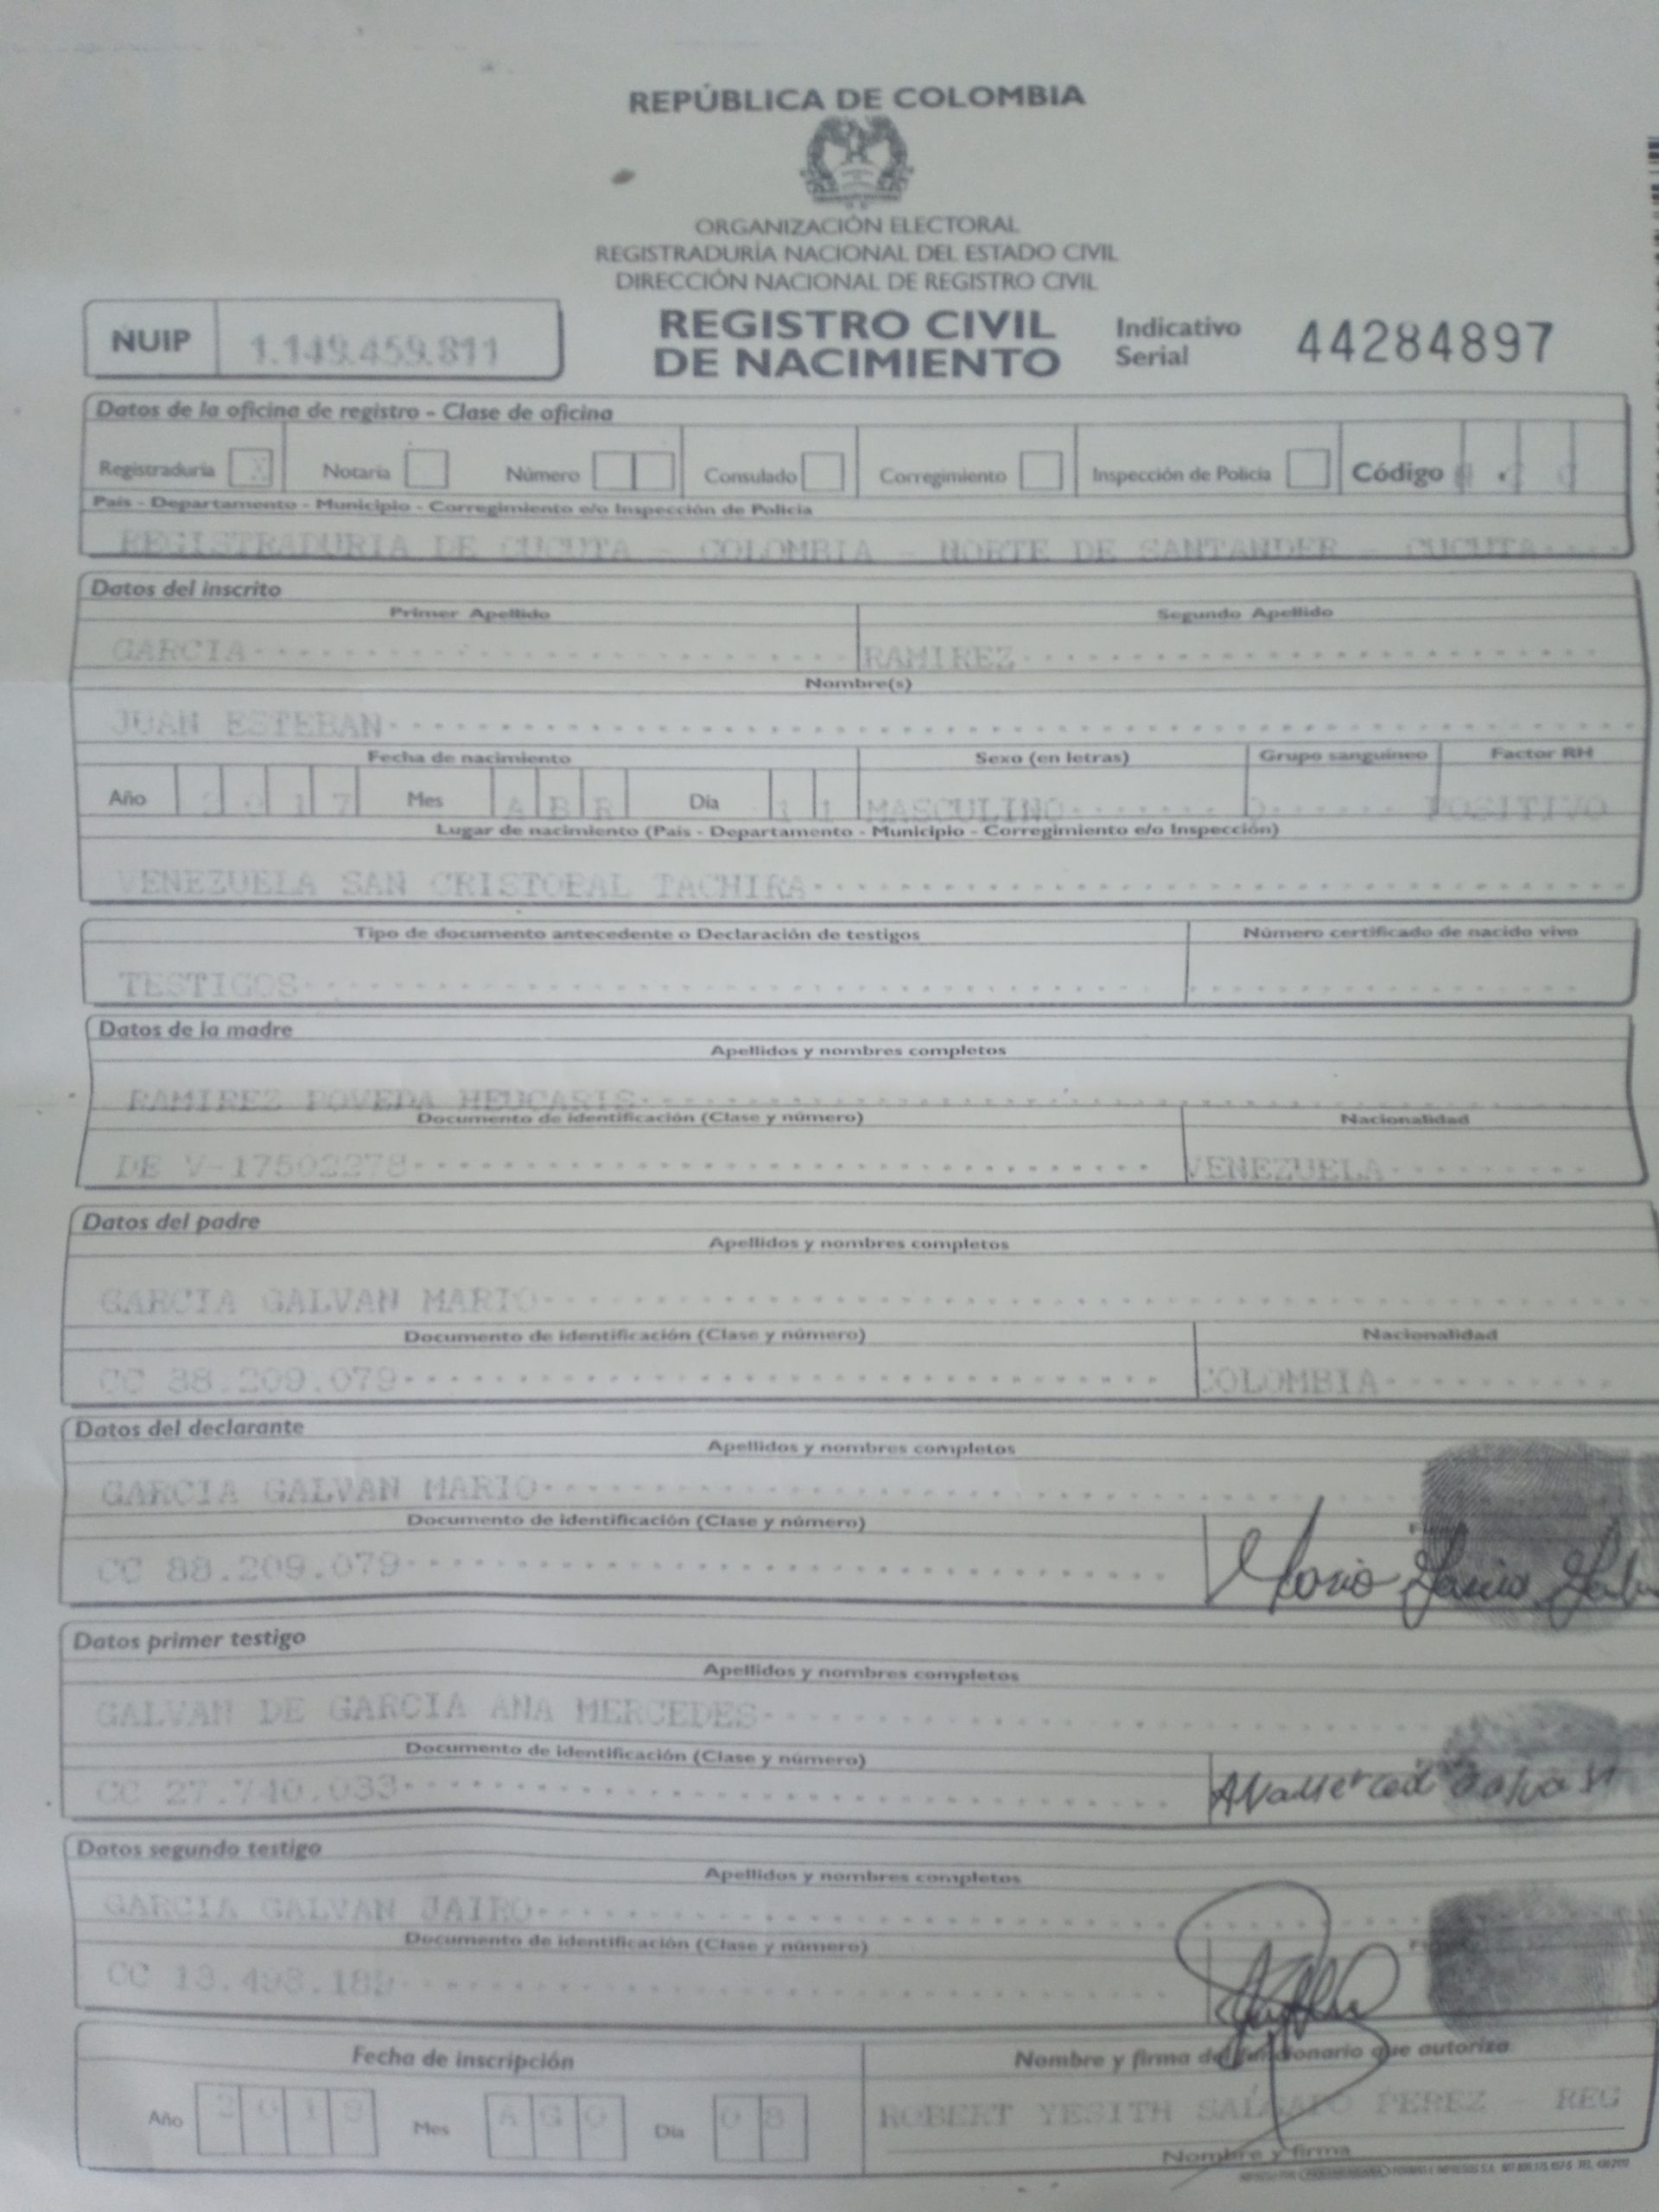 REPÚBLICA DE COLOMBIA
ORGANIZACIÓN ELECTORAL
REGISTRADURÍA NACIONAL DEL ESTADO CIVIL
DIRECCIÓN NACIONAL DE REGISTRO CIVIL
NUIP 1.149.459.811
REGISTRO CIVIL
DE NACIMIENTO
Indicativo
Serial 44284897
Datos de la oficina de registro - Clase de oficina
Registraduría X Notaría Número Consulado Corregimiento Inspección de Policía Código
País - Departamento - Municipio - Corregimiento e/o Inspección de Policía
REGISTRADURIA DE CUCUTA - COLOMBIA - NORTE DE SANTANDER - CUCUTA
Datos del inscrito
Primer Apellido Segundo Apellido
GARCIA RAMIREZ
Nombre(s)
JUAN ESTEBAN
Fecha de nacimiento Sexo (en letras) Grupo sanguíneo Factor RH
Año 2017 Mes ABR Día 11 MASCULINO POSITIVO
Lugar de nacimiento (País - Departamento - Municipio - Corregimiento e/o Inspección)
VENEZUELA SAN CRISTOBAL TACHIRA
Tipo de documento antecedente o Declaración de testigos Número certificado de nacido vivo
TESTIGOS
Datos de la madre
Apellidos y nombres completos
RAMIREZ POVEDA HEUCARIS
Documento de identificación (Clase y número) Nacionalidad
DE V-17502278 VENEZUELA
Datos del padre
Apellidos y nombres completos
GARCIA GALVAN MARIO
Documento de identificación (Clase y número) Nacionalidad
CC 88.209.079 COLOMBIA
Datos del declarante
Apellidos y nombres completos
GARCIA GALVAN MARIO
Documento de identificación (Clase y número)
CC 88.209.079 Mario Garcia
Datos primer testigo
Apellidos y nombres completos
GALVAN DE GARCIA ANA MERCEDES
Documento de identificación (Clase y número)
CC 27.740.033
Datos segundo testigo
Apellidos y nombres completos
GARCIA GALVAN JAIRO
Documento de identificación (Clase y número)
CC 13.493.189
Fecha de inscripción Nombre y firma del funcionario que autoriza
Año 2018 Mes AGO Día 08 ROBERT YESITH SALGADO PEREZ - REG
Nombre y firma